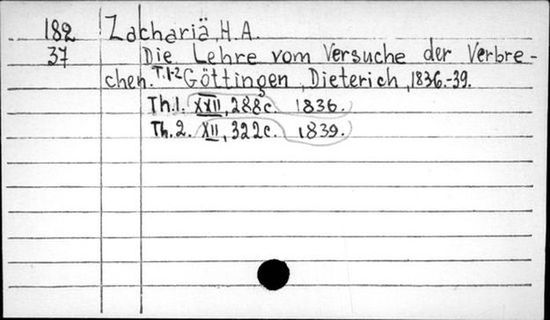 182 Zachariä, H. A.
37 Die Lehre vom Versuche der Verbre-
chen. T.1-2 Göttingen, Dieterich, 1836.-39.
Th.1. XXII, 288c. 1836.
Th.2. XII, 322c. 1839.